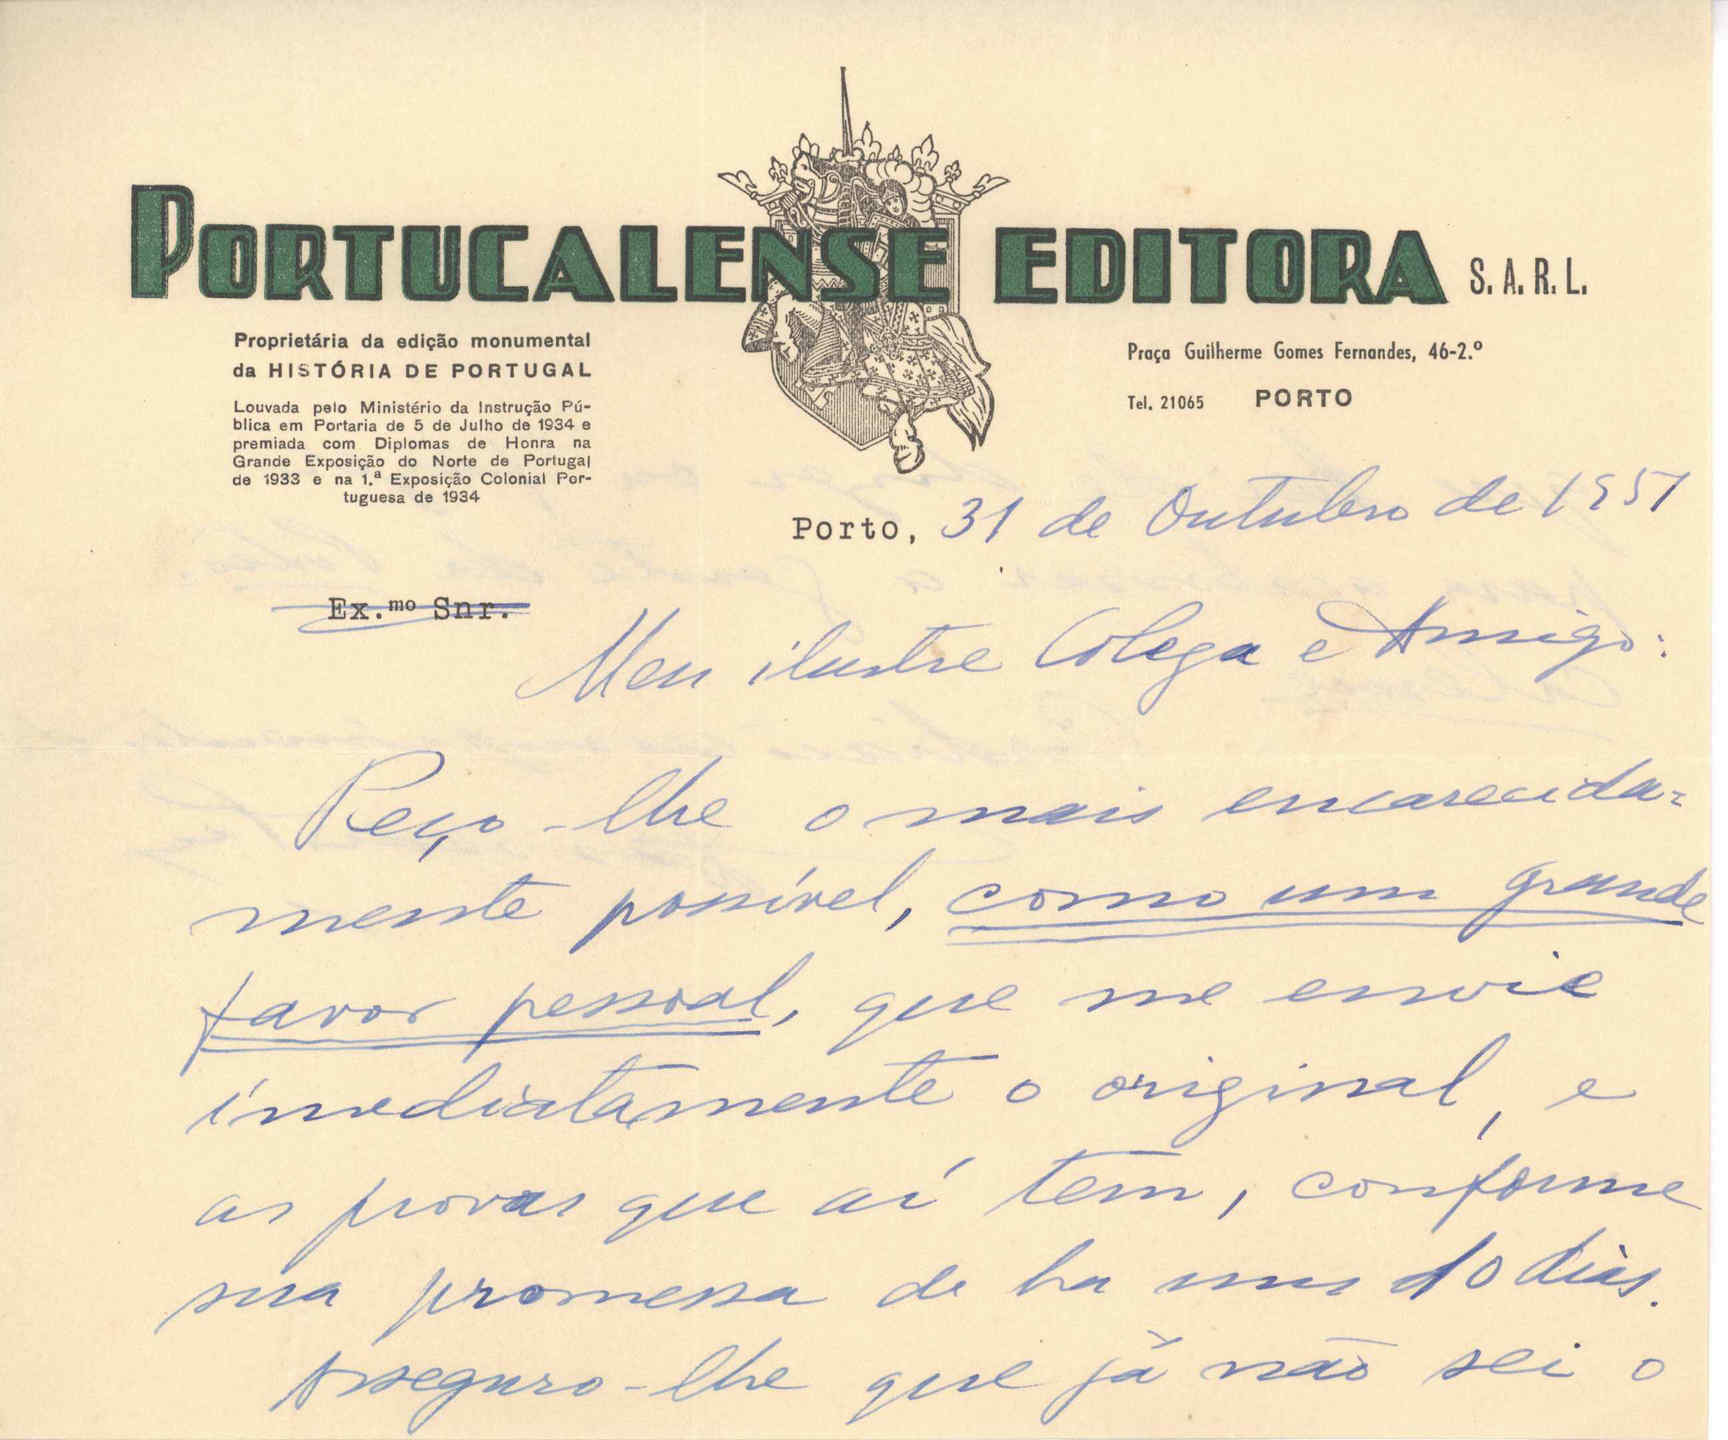 PORTUCALENSE EDITORA S. A. R. L.
Proprietária da edição monumental
da HISTÓRIA DE PORTUGAL
Louvada pelo Ministério da Instrução Pú-
blica em Portaria de 5 de Julho de 1934 e
premiada com Diplomas de Honra na
Grande Exposição do Norte de Portugal
de 1933 e na 1.ª Exposição Colonial Por-
tuguesa de 1934
Praça Guilherme Gomes Fernandes, 46-2.º
Tel. 21065 PORTO
Porto, 31 de Outubro de 1951
Ex.mo Snr.
Meu ilustre Colega e Amigo:
Peço-lhe o mais encarecida=
mente possível, como um grande
favor pessoal, que me envie
imediatamente o original, e
as provas que aí tem, conforme
sua promessa de ha uns 10 dias.
Asseguro-lhe que já não sei o